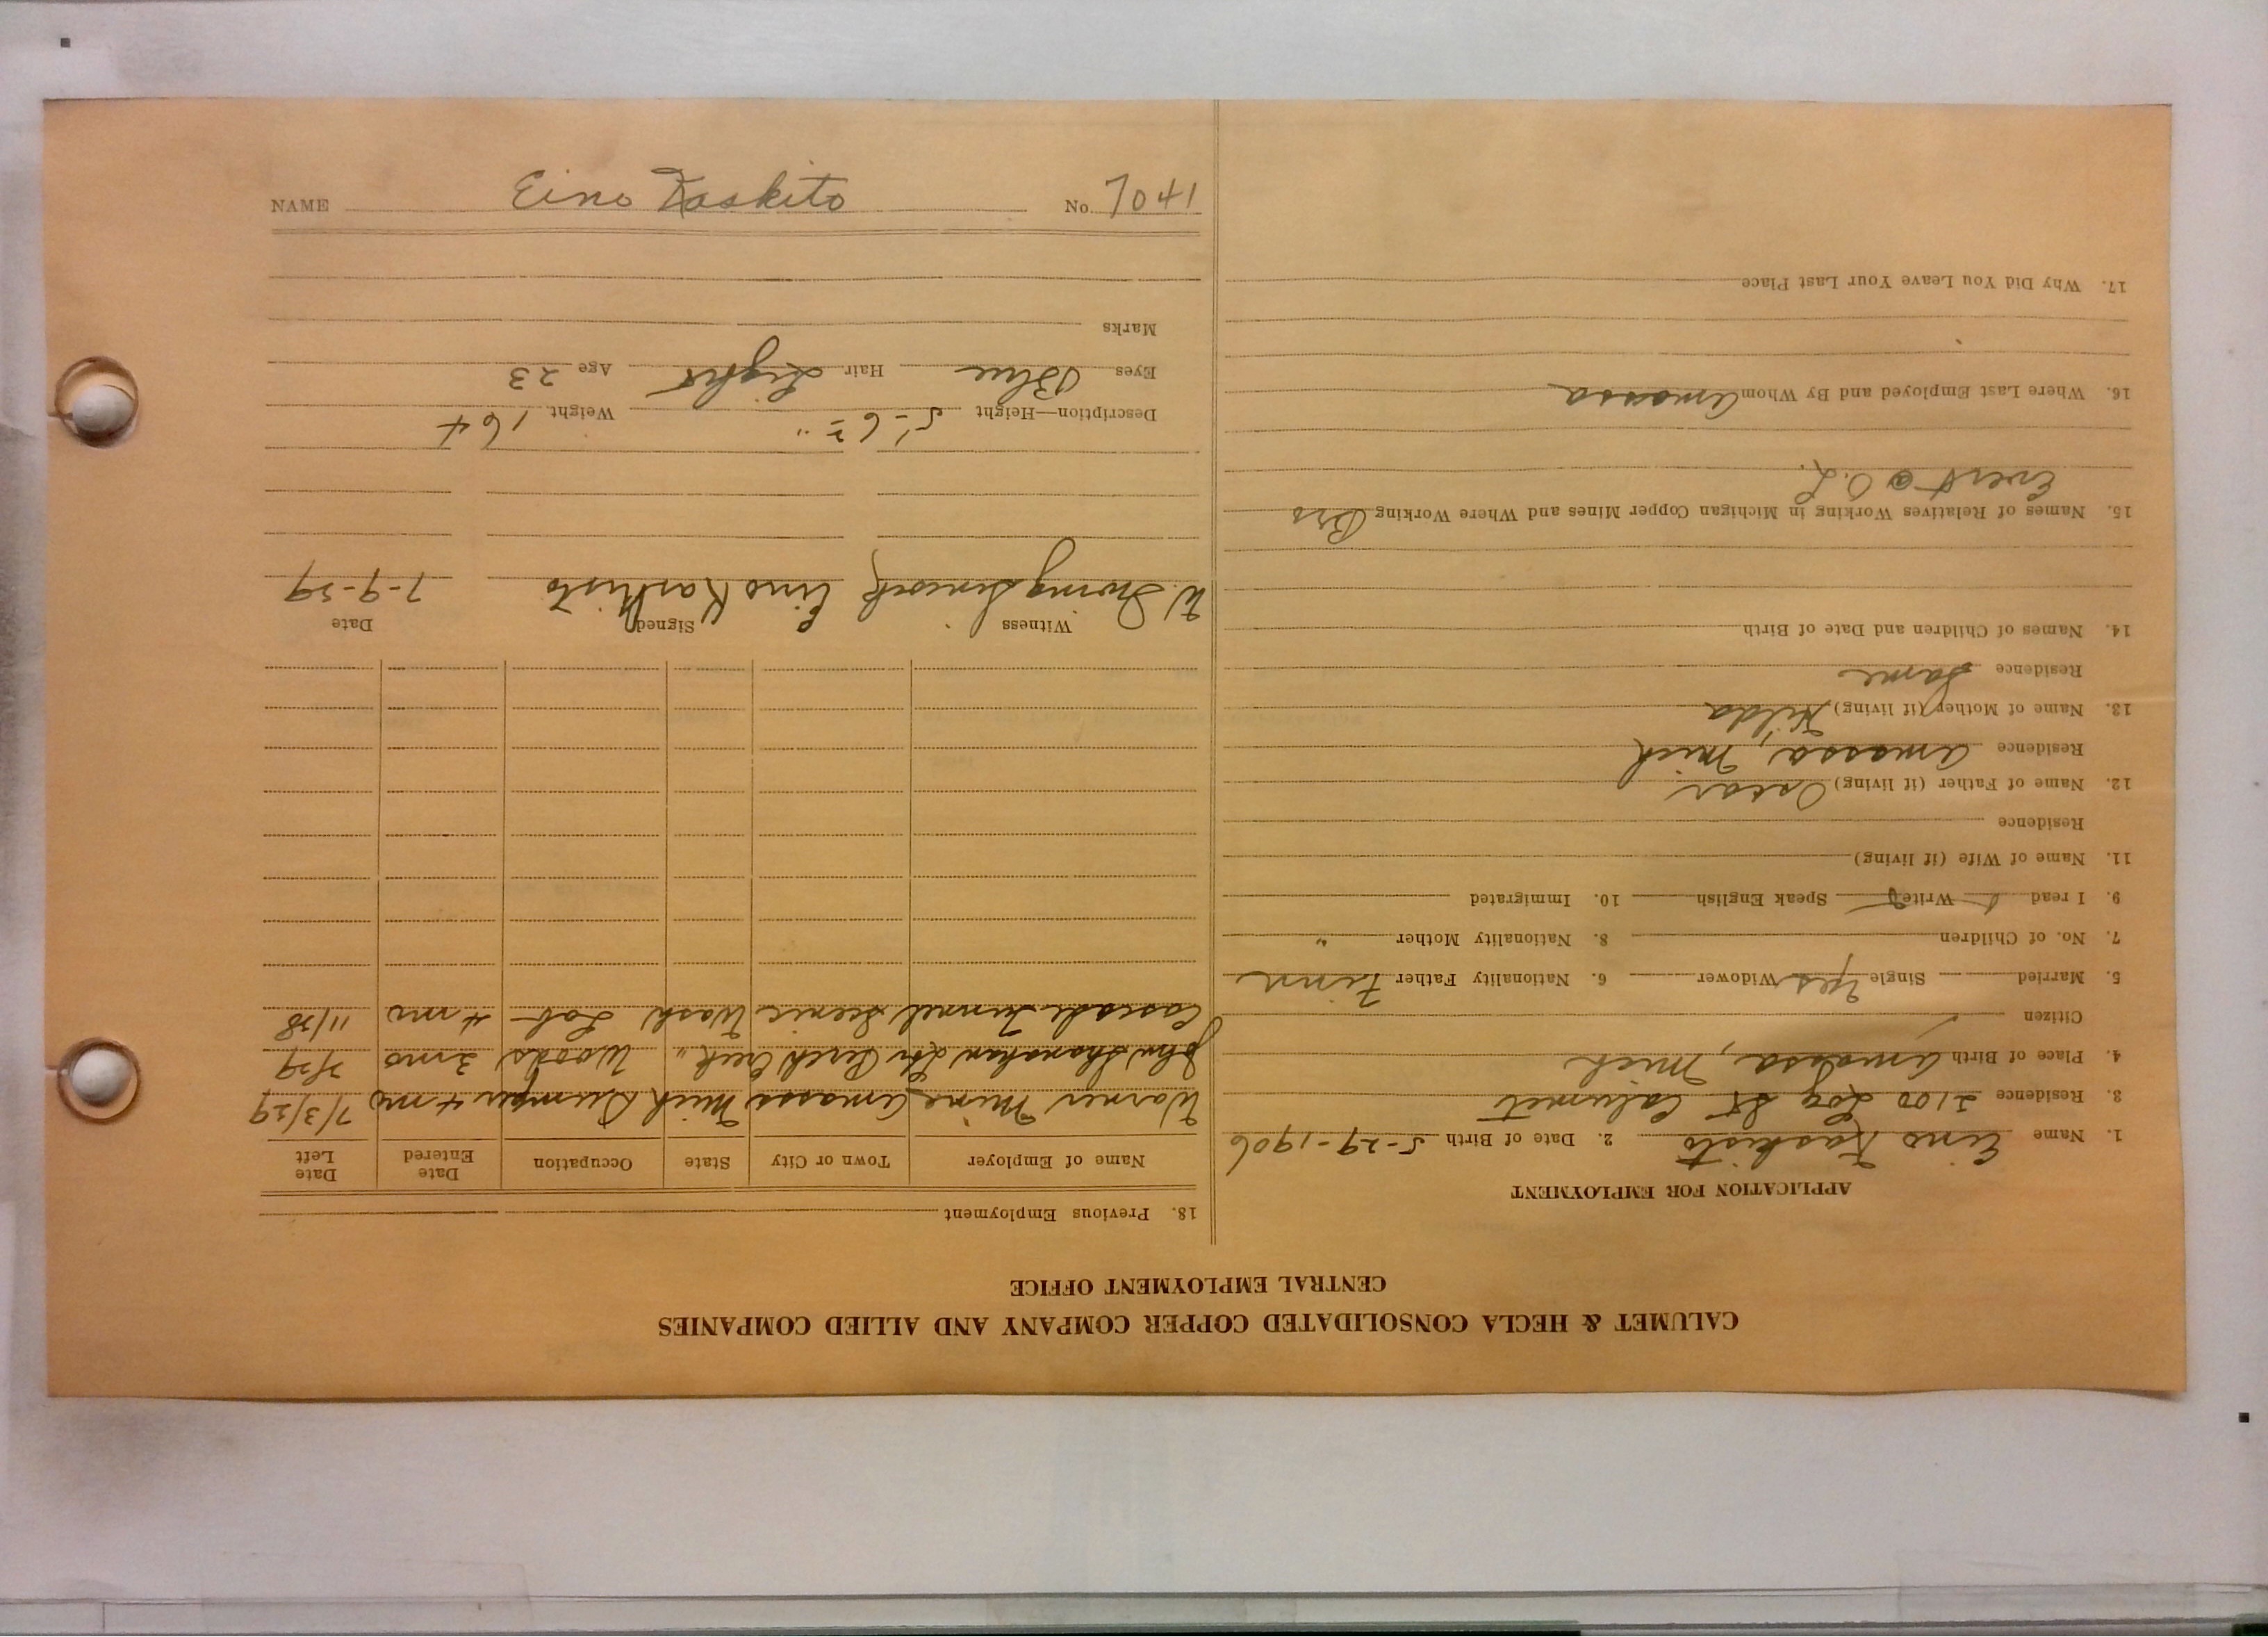 CALUMET & HECLA CONSOLIDATED COPPER COMPANY AND ALLIED COMPANIES
CENTRAL EMPLOYMENT OFFICE
APPLICATION FOR EMPLOYMENT
1. Name Eino Kaskisto 2. Date of Birth 5-29-1906
3. Residence 2100 Log St Calumet
4. Place of Birth Amassa, Mich
Citizen
5. Married Single Yes Widower 6. Nationality Father Finn
7. No. of Children 8. Nationality Mother "
9. I read Write Speak English 10. Immigrated
11. Name of Wife (if living)
Residence
12. Name of Father (if living) Oscar
Residence Amassa, Mich
13. Name of Mother (if living) Hilda
Residence Same
14. Names of Children and Date of Birth
15. Names of Relatives Working in Michigan Copper Mines and Where Working Bro
Evert @ O.L.
16. Where Last Employed and By Whom Amassa
17. Why Did You Leave Your Last Place
18. Previous Employment
Name of Employer Town or City State Occupation Date Entered Date Left
Warner Mine Amassa Mich 4 mo 7/3/29
John Shanahan Perch Creek " Woods 3 mo 3/29
Cascade Tunnel Scenic Wash Lab 4 mo 11/28
Witness Signed Date
W. Irving Eino Kaskisto 7-9-29
Description—Height 5'-6½" Weight 164
Eyes Blue Hair Light Age 23
Marks
NAME Eino Kaskito No. 7041